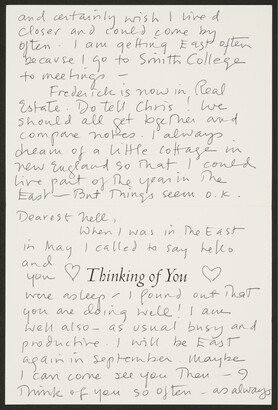 and certainly wish I lived
closer and could come by
often. I am getting East often
because I go to Smith College
to meetings —
Frederick is now in Real
Estate. Do tell Chris! We
should all get together and
compare notes. I always
dream of a little cottage in
new England so that I could
live part of the year in the
East — But Things seem o.k.
Dearest nell,
When I was in the East
in May I called to say hello
and
you ♡ Thinking of You ♡
were asleep — I found out that
you are doing well! I am
well also — as usual busy and
productive. I will be East
again in September maybe
I can come see you then — I
Think of you so often — as always